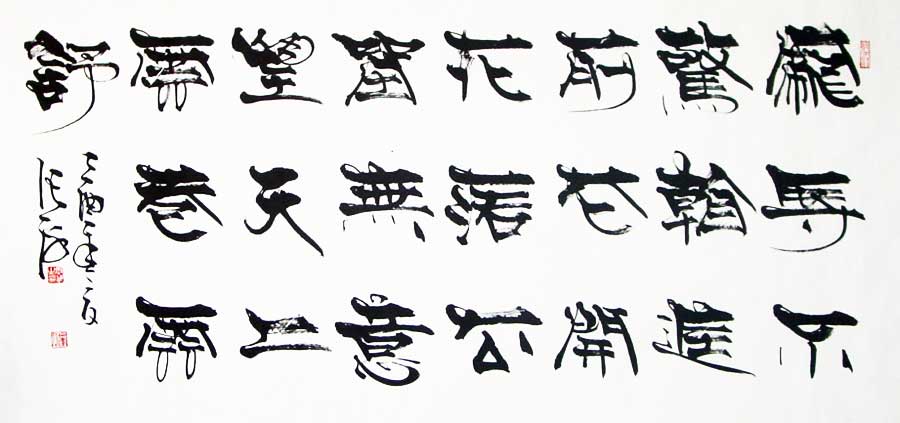 寵辱不
驚看庭
前花開
花落去
留無意
望天上
雲卷雲
舒
乙酉年